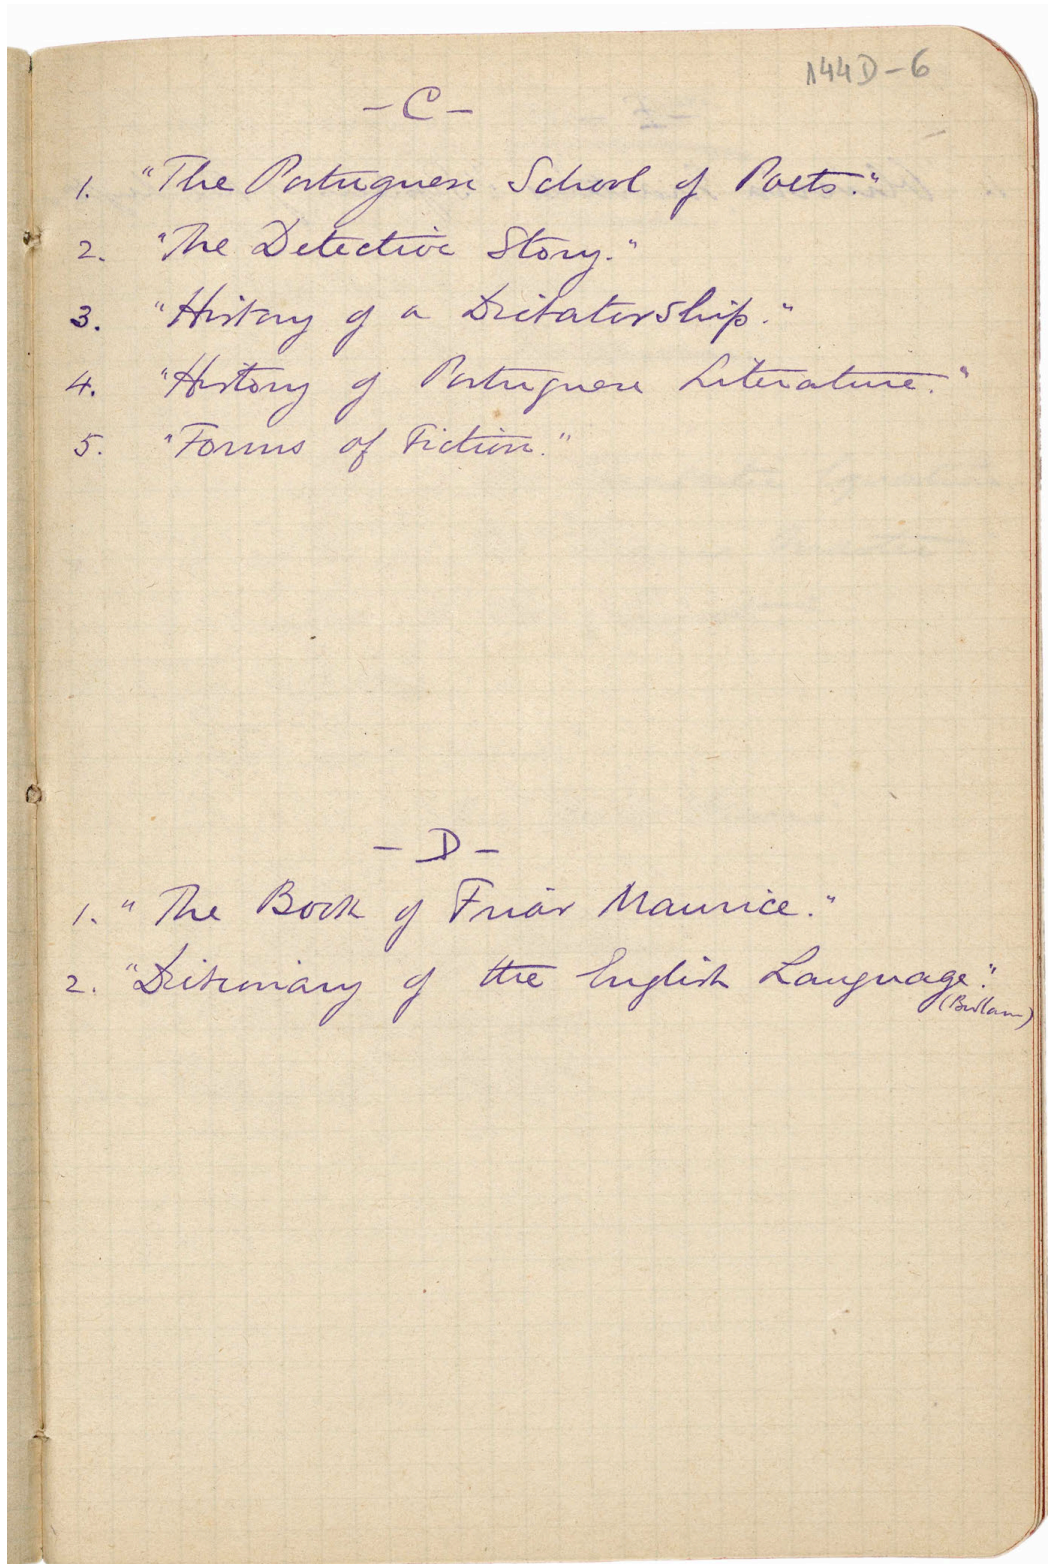 144D-6
- C -
1. "The Portuguese School of Poets."
2. "The Detective Story."
3. "History of a Dictatorship."
4. "History of Portuguese Literature."
5. "Forms of Fiction."
- D -
1. "The Book of Friar Maurice."
2. "Dictionary of the English Language."
(Bedlam)